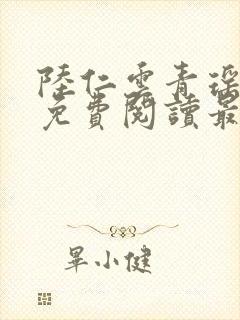 陸仁雲青瑤
免費閱讀最
畢小健